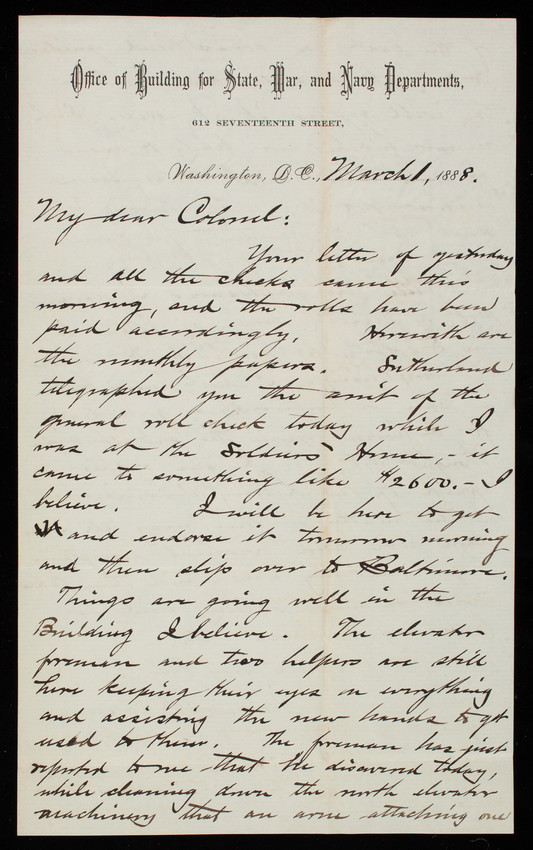 Office of Building for State, War, and Navy Departments,
612 SEVENTEENTH STREET,
Washington, D.C., March 1, 1888.
My dear Colonel:
Your letter of yesterday
and all the checks came this
morning, and the rolls have been
paid accordingly. Herewith are
the monthly papers. Sutherland
telegraphed you the amt of the
general roll check today while I
was at the Soldiers' Home,- it
came to something like $2600.- I
believe. I will be here to get
it and endorse it tomorrow morning
and then slip over to Baltimore.
Things are going well in the
Building I believe. The elevator
foreman and two helpers are still
here keeping their eyes on everything
and assisting the new hands to get
used to them. The foreman has just
reported to me that he discovered today,
while cleaning down the north elevator
machinery that an arm attaching one